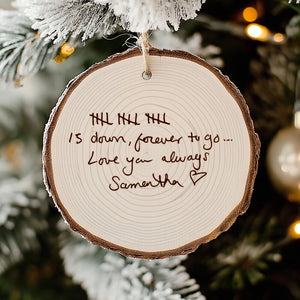 𝍸 𝍸 𝍸
15 down, forever to go...
Love you always
Samantha ♡